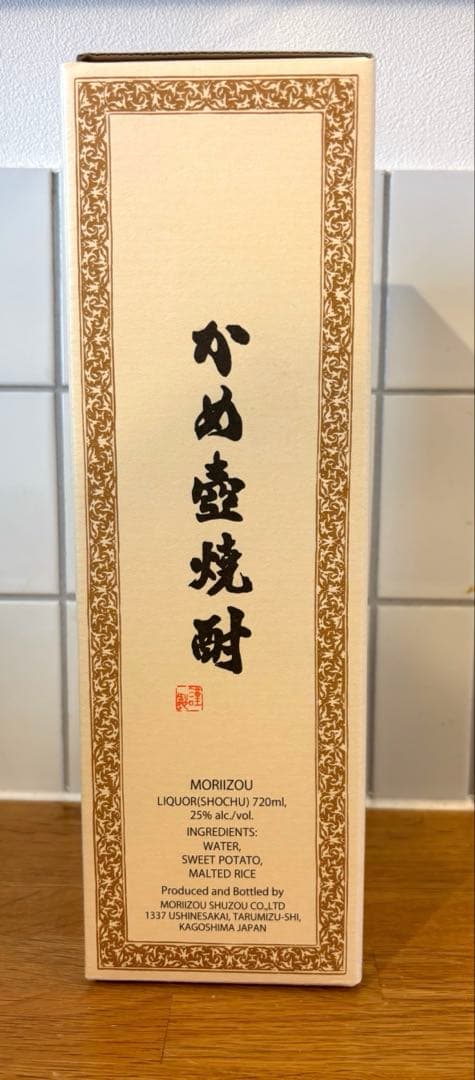 かめ壺焼酎
謹製
MORIIZOU
LIQUOR(SHOCHU) 720ml,
25% alc./vol.
INGREDIENTS:
WATER,
SWEET POTATO,
MALTED RICE
Produced and Bottled by
MORIIZOU SHUZOU CO.,LTD
1337 USHINESAKAI, TARUMIZU-SHI,
KAGOSHIMA JAPAN